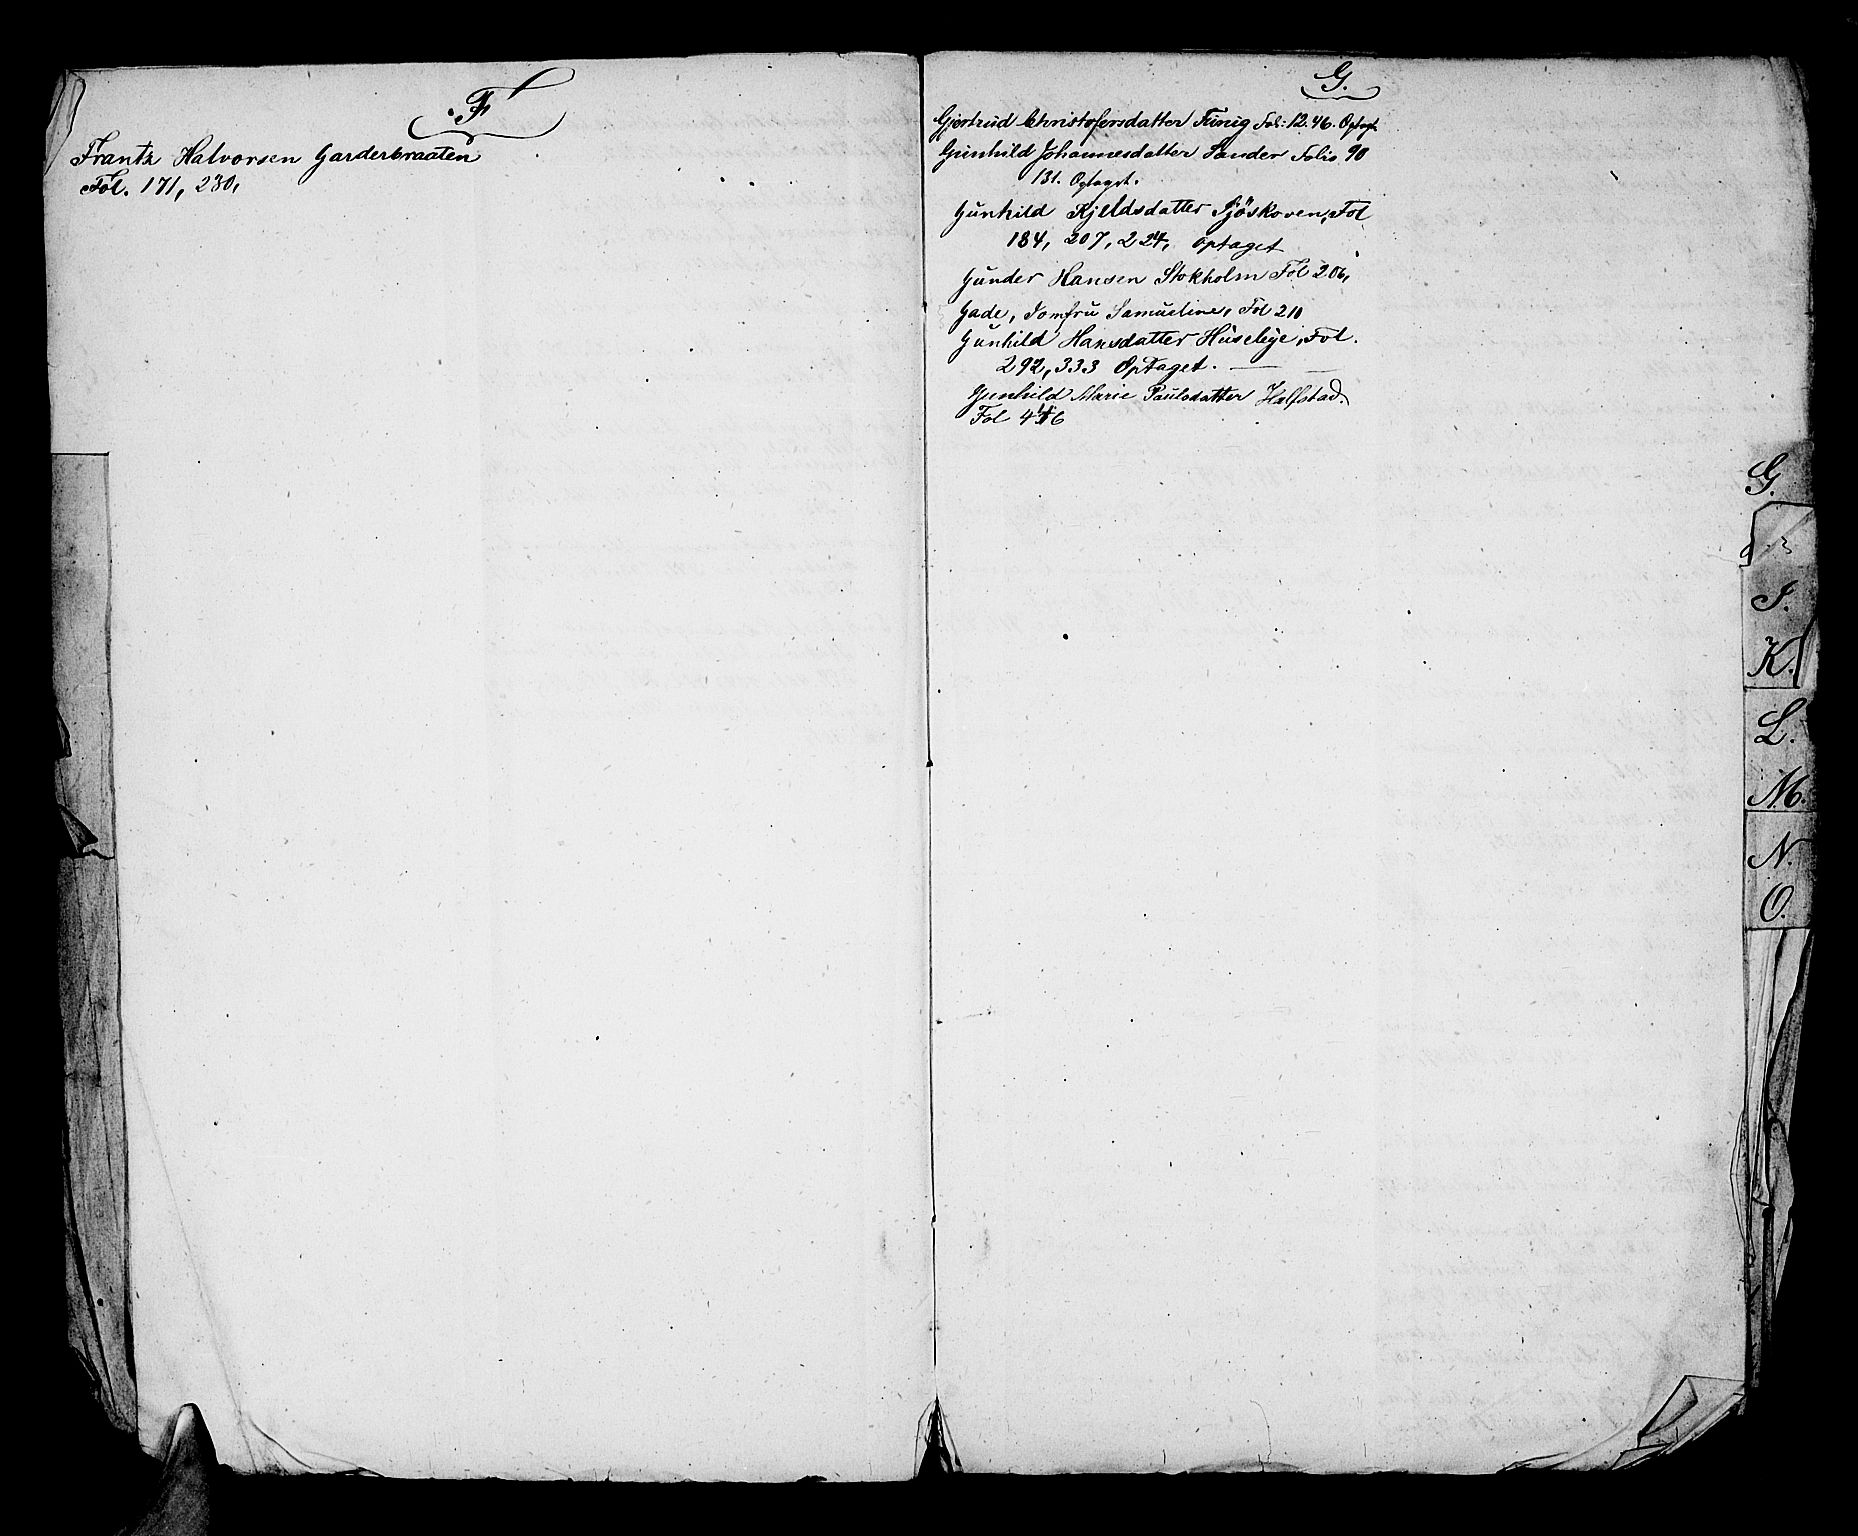 F
Frantz Halvorsen Garderbraaten
Fol. 171, 230,
G.
Gjertrud Christofersdatter Funig Fol: 12. 46. Optaget
Gunhild Johannesdatter Sander Folio 90
131. Optaget.
Gunhild Kjeldsdatter Sjöskoven, Fol
184, 207, 224, Optaget
Gunder Hansen Stokholm Fol 206,
Gade, Jomfru Samueline, Fol 210
Gunhild Hansdatter Huseby, Fol.
292, 333 Optaget.
Gunhild Marie Paulsdatter Halfstad.
Fol
G.
I.
K.
L.
M.
N.
O.